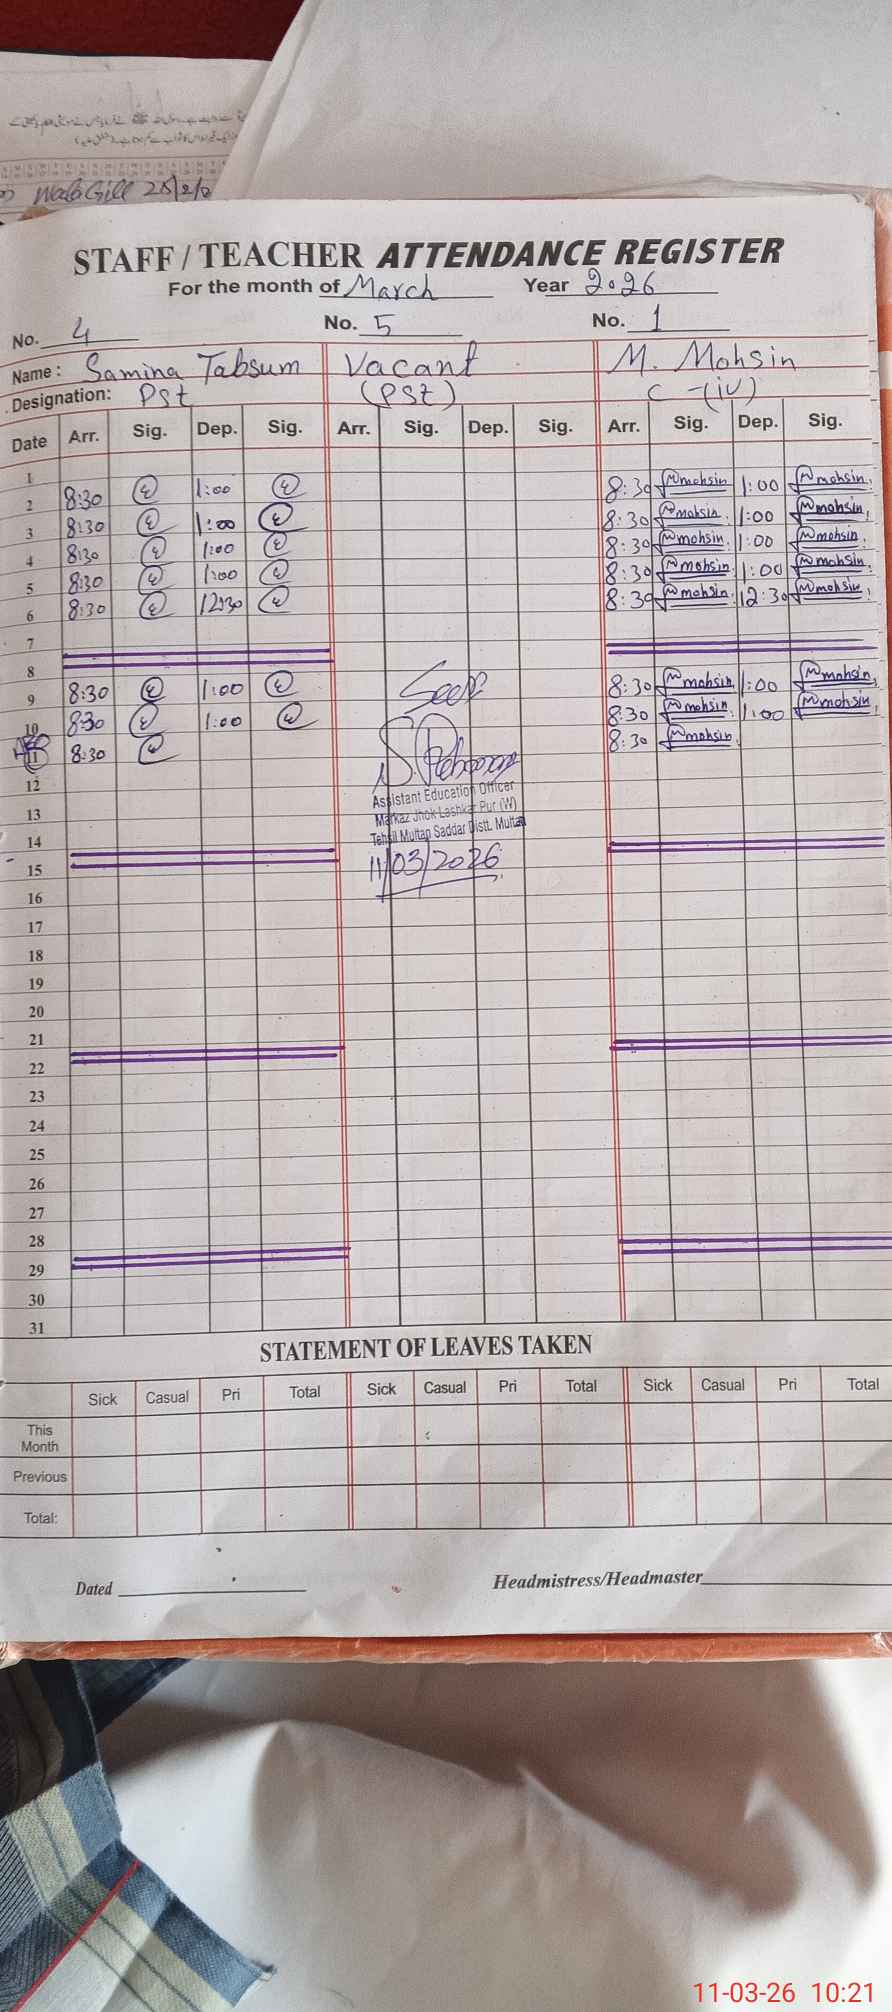 Wada Gill 25/2/2
STAFF / TEACHER ATTENDANCE REGISTER
For the month of March Year 2026
No. 4 No. 5 No. 1
Name: Samina Tabsum Vacant M. Mohsin
Designation: Pst (PSt) C-(iv)
Date Arr. Sig. Dep. Sig. Arr. Sig. Dep. Sig. Arr. Sig. Dep. Sig.
1
2 8:30 1:00 8:30 mohsin 1:00 mohsin
3 8:30 1:00 8:30 mohsin 1:00 mohsin
4 8:30 1:00 8:30 mohsin 1:00 mohsin
5 8:30 1:00 8:30 mohsin 1:00 mohsin
6 8:30 12:30 8:30 mohsin 12:30 mohsin
7
8
9 8:30 1:00 Seen 8:30 mohsin 1:00 mohsin
10 8:30 1:00 8:30 mohsin 1:00 mohsin
11 8:30 8:30 mohsin
12
Assistant Education Officer
13
Markaz Jhok Lashkar Pur (W)
Tehsil Multan Saddar Distt. Multan
14
15 11/03/2026
16
17
18
19
20
21
22
23
24
25
26
27
28
29
30
31
STATEMENT OF LEAVES TAKEN
Sick Casual Pri Total Sick Casual Pri Total Sick Casual Pri Total
This Month
Previous
Total:
Dated Headmistress/Headmaster
11-03-26 10:21